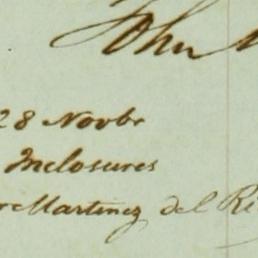 John
28 Novbr
Inclosures
Martinez del